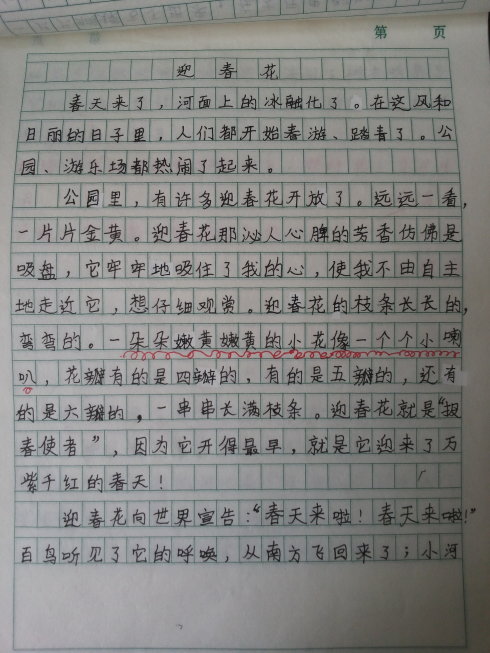 第 页
迎春花
春天来了，河面上的冰融化了。在这风和
日丽的日子里，人们都开始春游、踏青了。公
园、游乐场都热闹了起来。
公园里，有许多迎春花开放了。远远一看，
一片片金黄。迎春花那沁人心脾的芳香仿佛是
吸盘，它牢牢地吸住了我的心，使我不由自主
地走近它，想仔细观赏。迎春花的枝条长长的，
弯弯的。一朵朵嫩黄嫩黄的小花像一个个小喇
叭，花瓣有的是四瓣的，有的是五瓣的，还有
的是六瓣的，一串串长满枝条。迎春花就是“报
春使者”，因为它开得最早，就是它迎来了万
紫千红的春天！
迎春花向世界宣告：“春天来啦！春天来啦！”
百鸟听见了它的呼唤，从南方飞回来了；小河